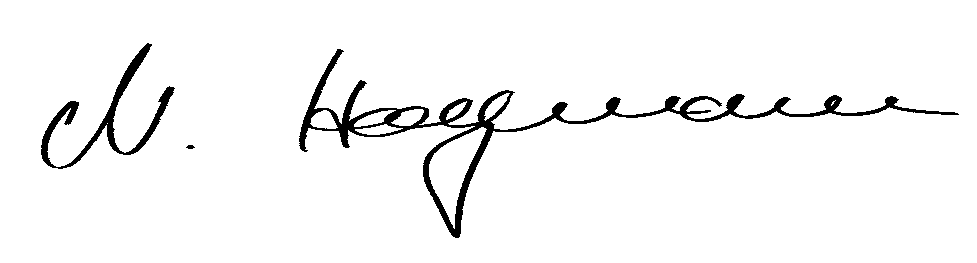 N. Hoffmann